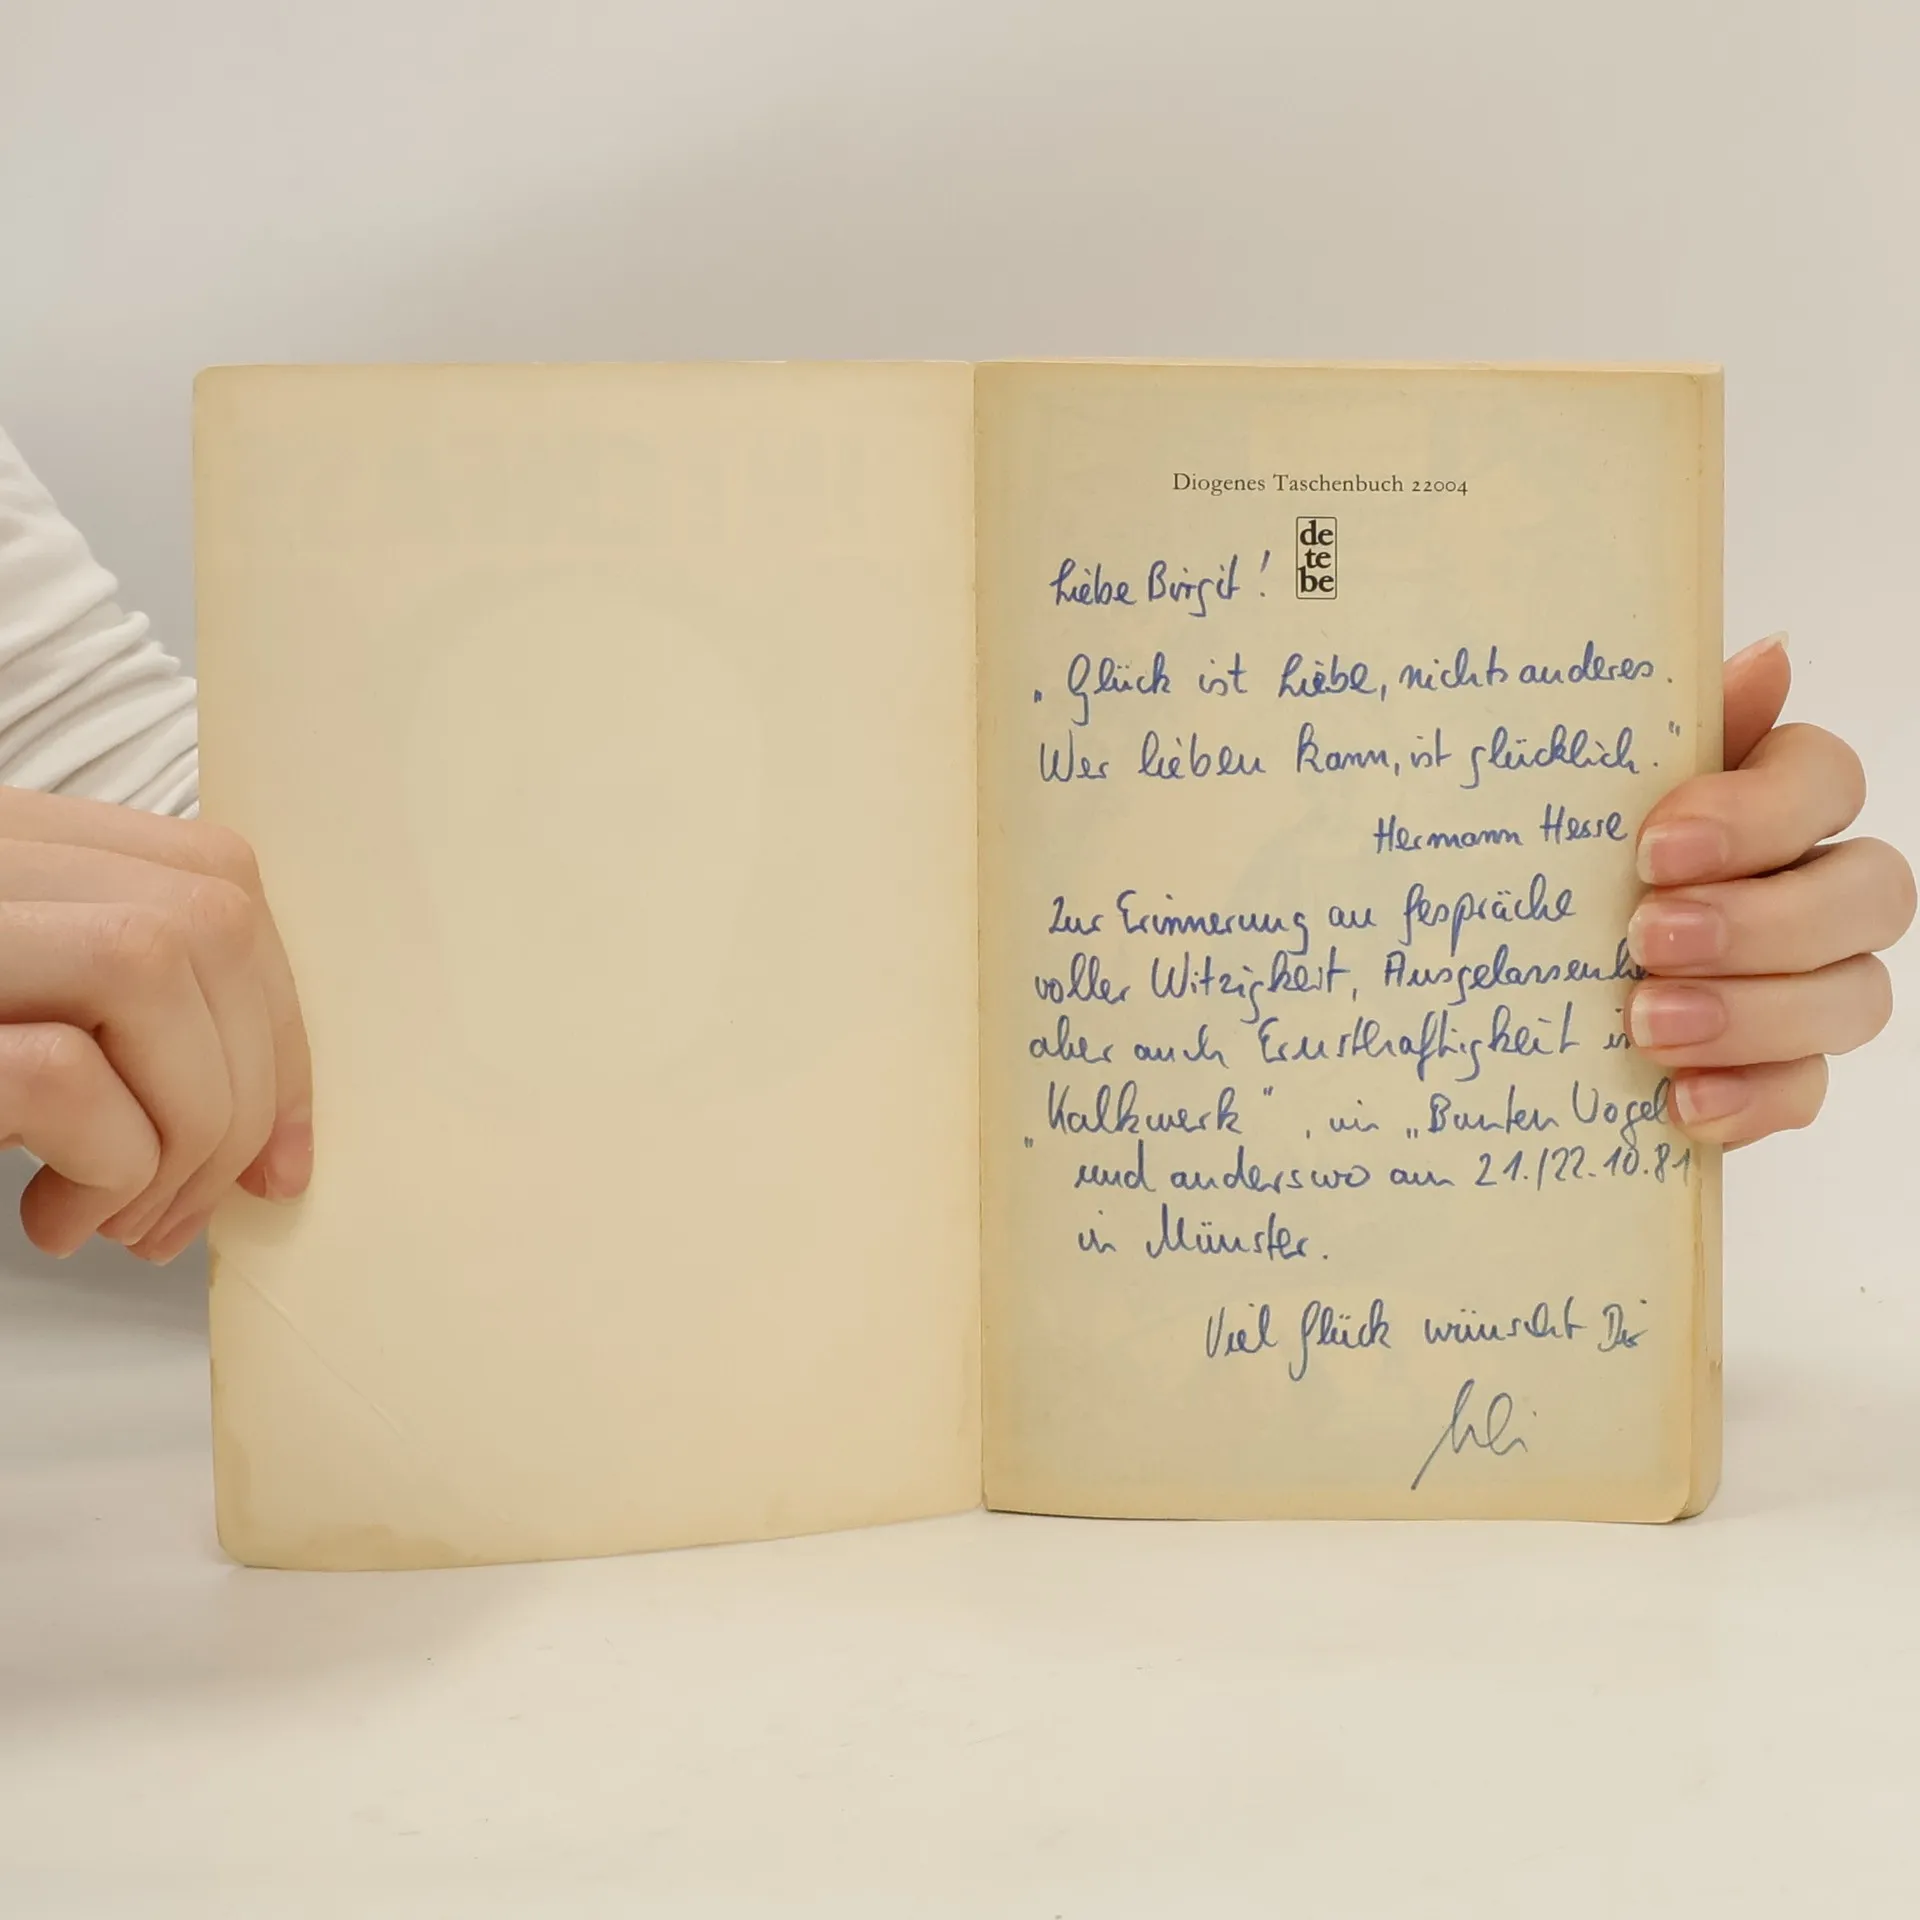 Diogenes Taschenbuch 22004
de
te
be
Liebe Birgit!
„Glück ist Liebe, nichts anderes.
Wer lieben kann, ist glücklich."
Hermann Hesse
Zur Erinnerung an Gespräche
voller Witzigkeit, Ausgelassenhe
aber auch Ernsthaftigkeit in
„Kalkwerk", im „Bunten Vogel
und anderswo am 21./22.10.81
in Münster.
Viel Glück wünscht Dir